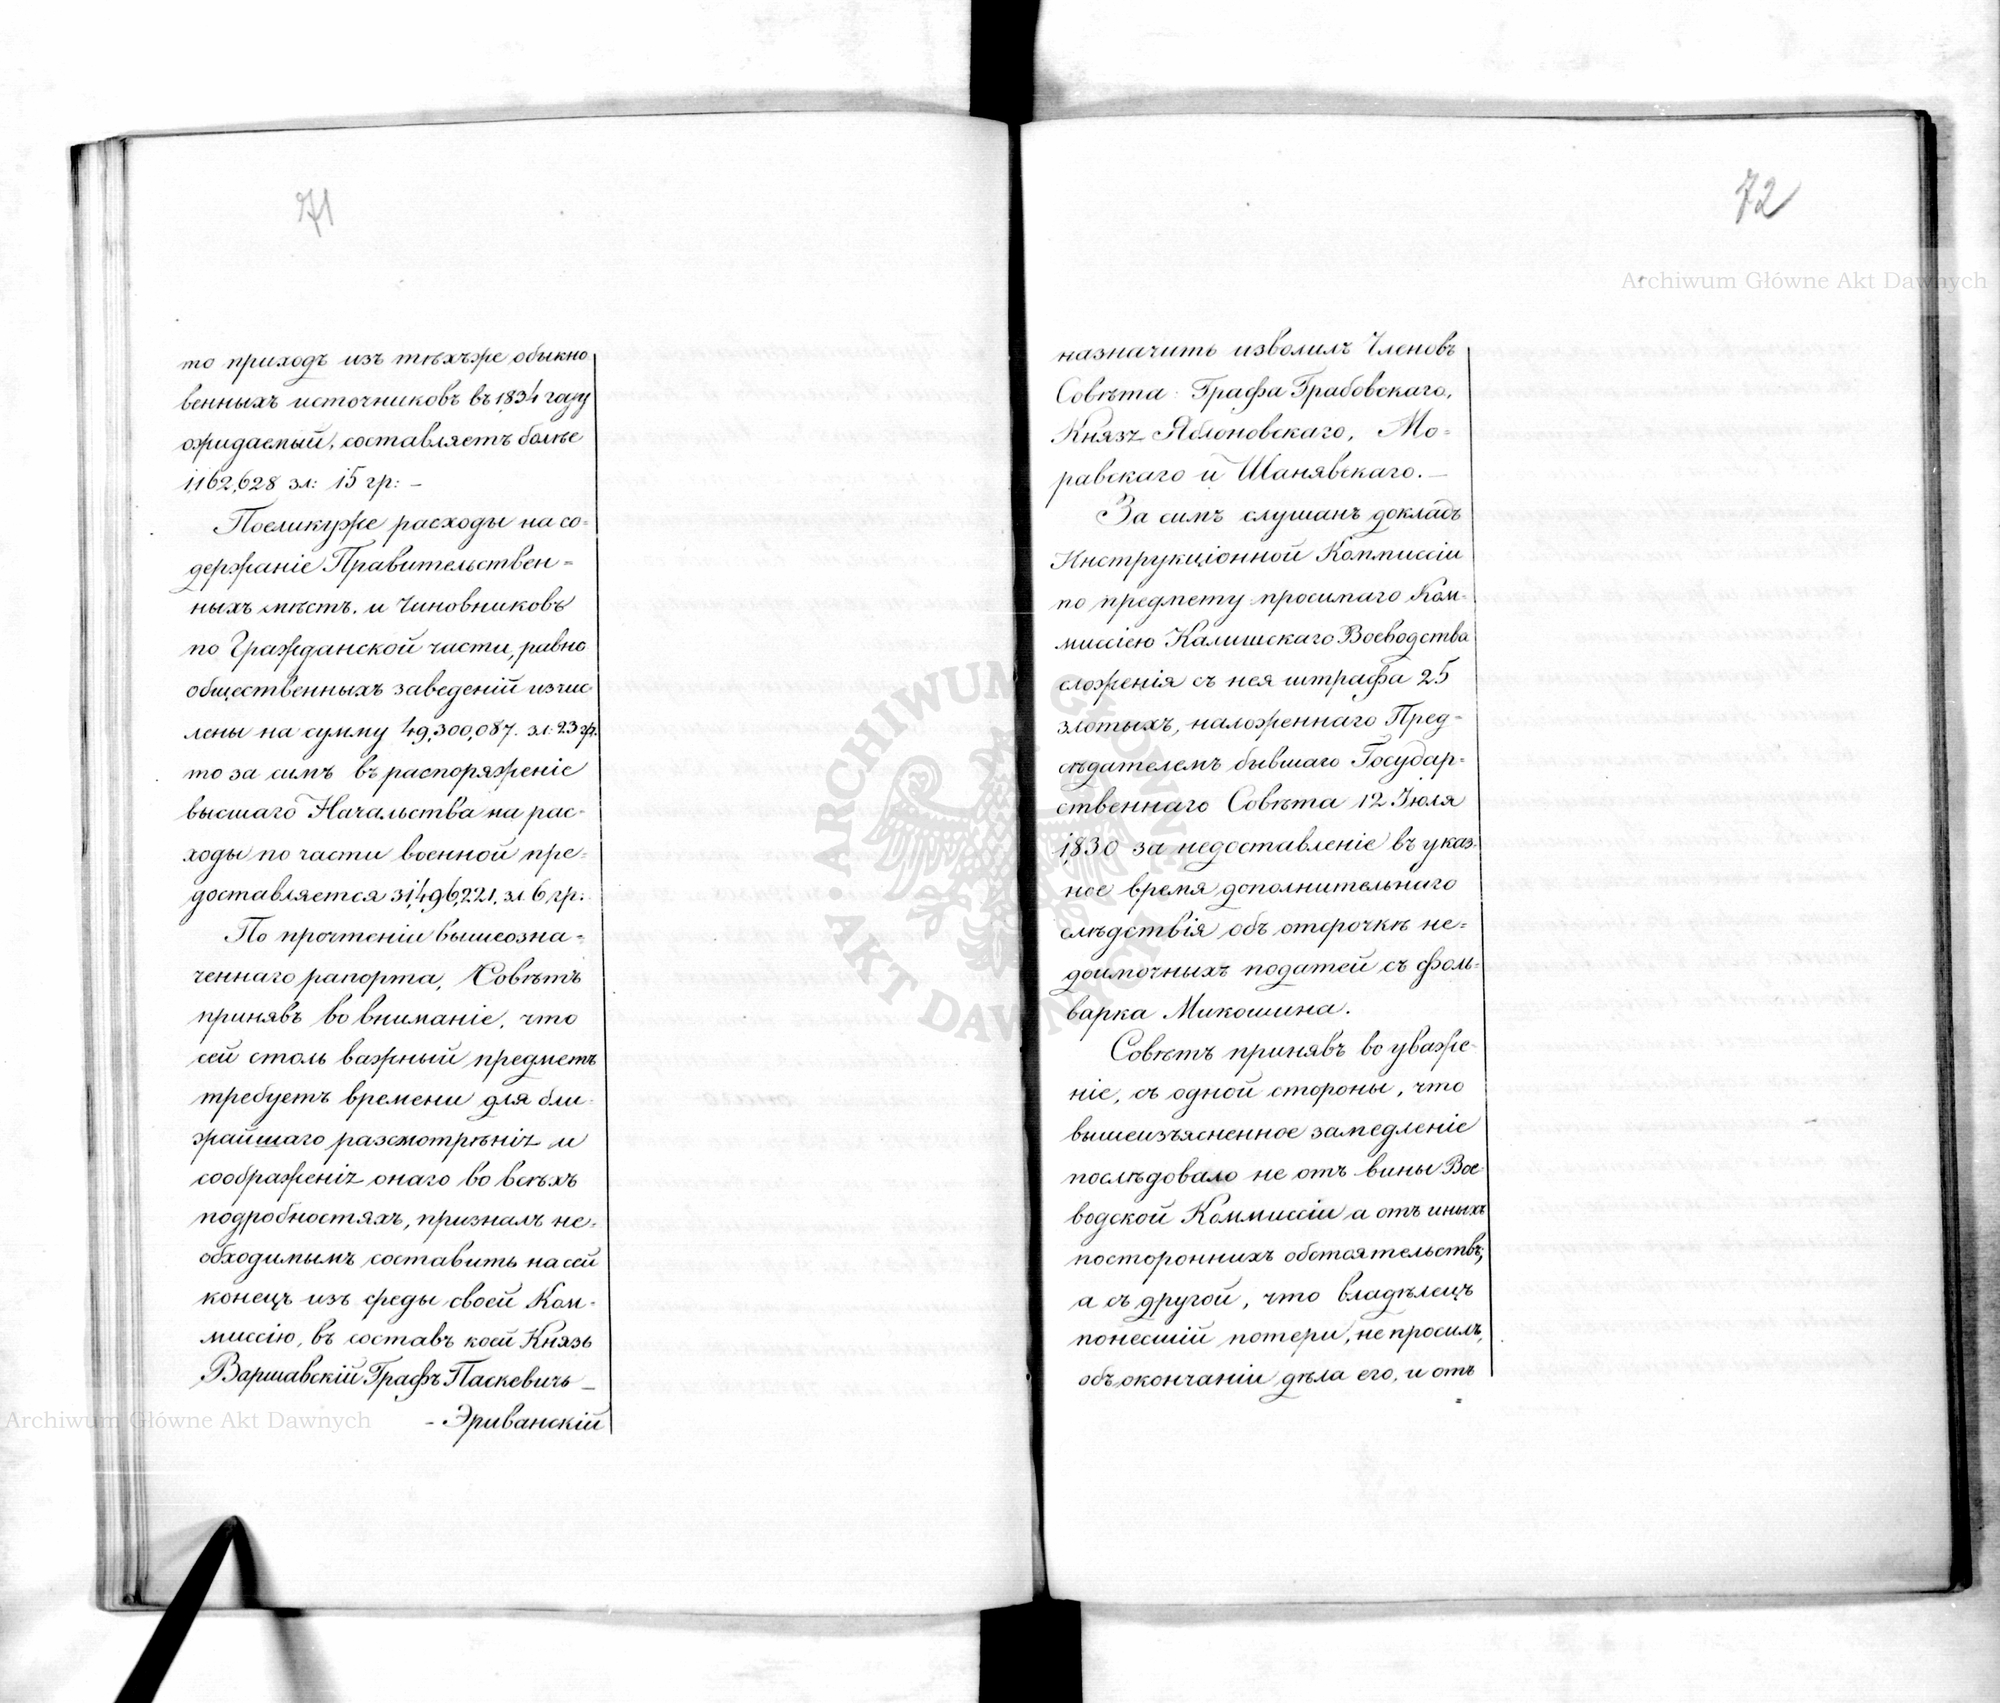 71
то приходъ изъ тѣхъже обыкно
венныхъ источниковъ въ 1834 году
ожидаемый, составляетъ болѣе
1,162,628 зл: 15 гр: –
Поеликуже расходы на со=
держаніе Правительствен=
ныхъ мѣстъ, и Чиновниковъ
по Гражданской части, равно
общественныхъ заведеній изчис
лены на сумму 49,300,087. зл: 23 гр.
то за симъ въ распоряженіе
высшаго Начальства на рас=
ходы по части военной пре=
доставляется 31,496,221. зл. 6 гр:
По прочтеніи вышеозна=
ченнаго рапорта, Совѣтъ
принявъ во вниманіе, что
сей столь важный предметъ
требуетъ времени для бли=
жайшаго разсмотрѣнія и
соображенія онаго во всѣхъ
подробностяхъ, призналъ не=
обходимымъ составить на сей
конецъ изъ среды своей Ком=
миссію, въ составъ коей Князь
Варшавскій Графъ Паскевичь –
– Эриванскій
72
назначить изволилъ Членовъ
Совѣта: Графа Грабовскаго,
Князя Яблоновскаго, Мо=
равскаго и Шанявскаго. –
За симъ слушанъ докладъ
Инструкціонной Коммиссіи
по предмету просимаго Ком=
миссіею Калишскаго Воеводства
сложенія съ нея штрафа 25
злотыхъ, наложеннаго Пред=
сѣдателемъ бывшаго Государ=
ственнаго Совѣта 12 Іюля
1830 за недоставленіе въ указ=
ное время дополнительнаго
слѣдствія объ отсрочкѣ не=
доимочныхъ податей съ фоль=
варка Микошина.
Совѣтъ принявъ во уваже=
ніе, съ одной стороны, что
вышеизъясненное замедленіе
послѣдовало не отъ вины Вое
водской Коммиссіи а отъ иныхъ
постороннихъ обстоятельствъ;
а съ другой, что владѣлецъ
понесшій потери, не просилъ,
объ окончаніи дѣла его, и отъ
=
Archiwum Główne Akt Dawnych
Archiwum Główne Akt Dawnych
ARCHIWUM GŁÓWNE AKT DAWNYCH